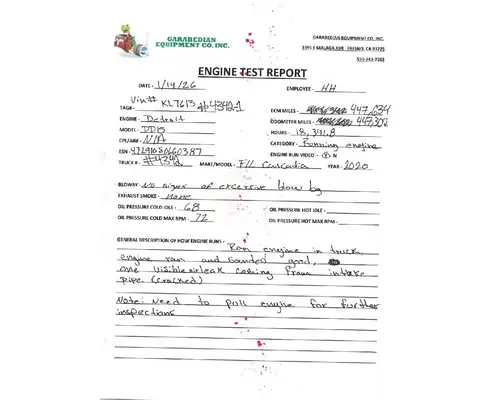 GARABEDIAN
EQUIPMENT CO. INC.
GARABEDIAN EQUIPMENT CO. INC.
3395 E MALAGA AVE FRESNO, CA 93725
559-243-7563
ENGINE TEST REPORT
DATE - 1/14/26
EMPLOYEE - HH
Vin# KL7613
TAG# - #43421
ECM MILES - 447,634
ENGINE - Detroit
ODOMETER MILES - 447,302
MODEL - DD15
HOURS - 18,341.8
CPL/AR# - N/A
CATEGORY - Running engine
ESN - 472910S0660387
ENGINE RUN VIDEO - Y N
TRUCK # - #4342
MAKE/MODEL - F/L Cascadia
YEAR - 2020
BLOWBY - No signs of excessive blow by
EXHAUST SMOKE - None
OIL PRESSURE COLD IDLE - 68
OIL PRESSURE HOT IDLE -
OIL PRESSURE COLD MAX RPM - 72
OIL PRESSURE HOT MAX RPM -
GENERAL DESCRIPTION OF HOW ENGINE RUNS - Ran engine in truck,
engine ran and sounded good,
one visible leak coming from intake
pipe (cracked)
Note: Need to pull engine for further
inspections